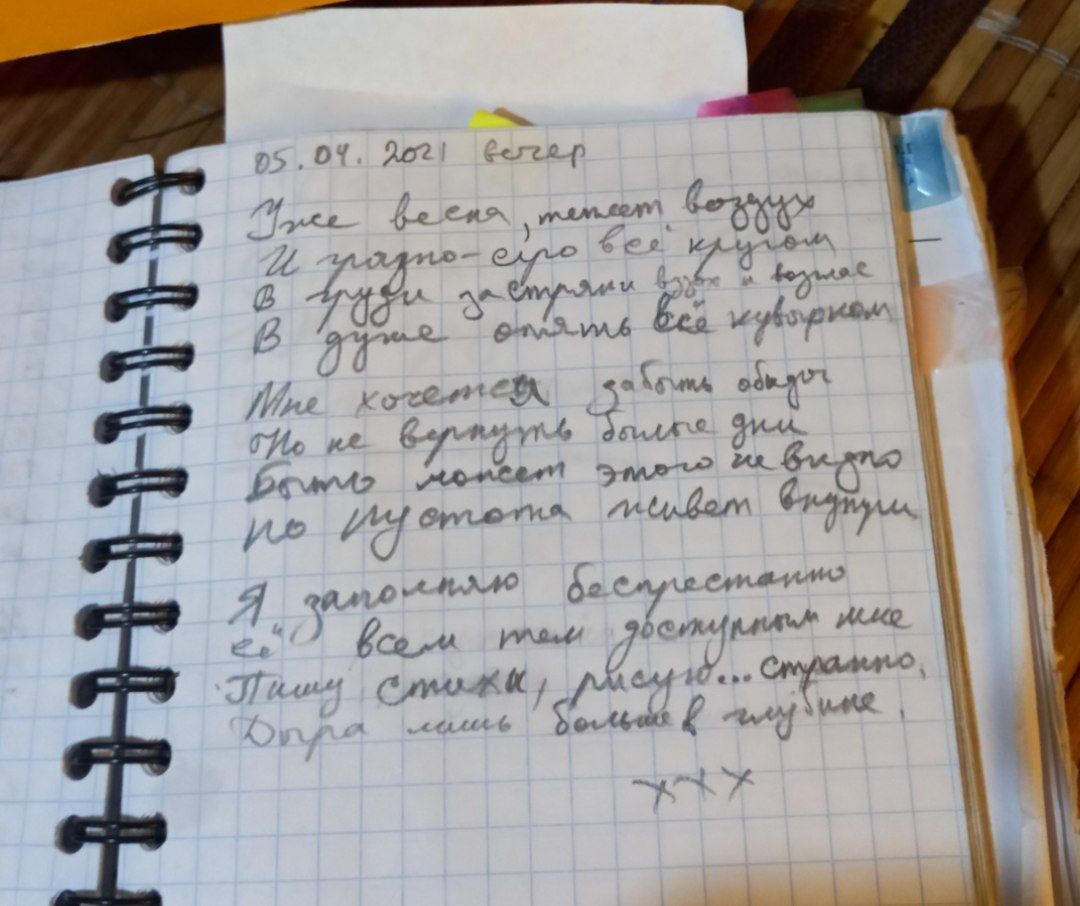 05.04.2021 вечер
Уже весна, тепсет воздух
И грязно-серо всё кругом
В груди застряли вздох и возглас
В душе опять всё кувырком
Мне хочется забыть обиды
Но не вернуть былые дни
Быть может этого не видно
Но пустота живет внутри
Я заполняю беспрестанно
её всем тем доступным мне
Пишу стихи, рисую... странно,
Дыра лишь больше в глубине.
х х х